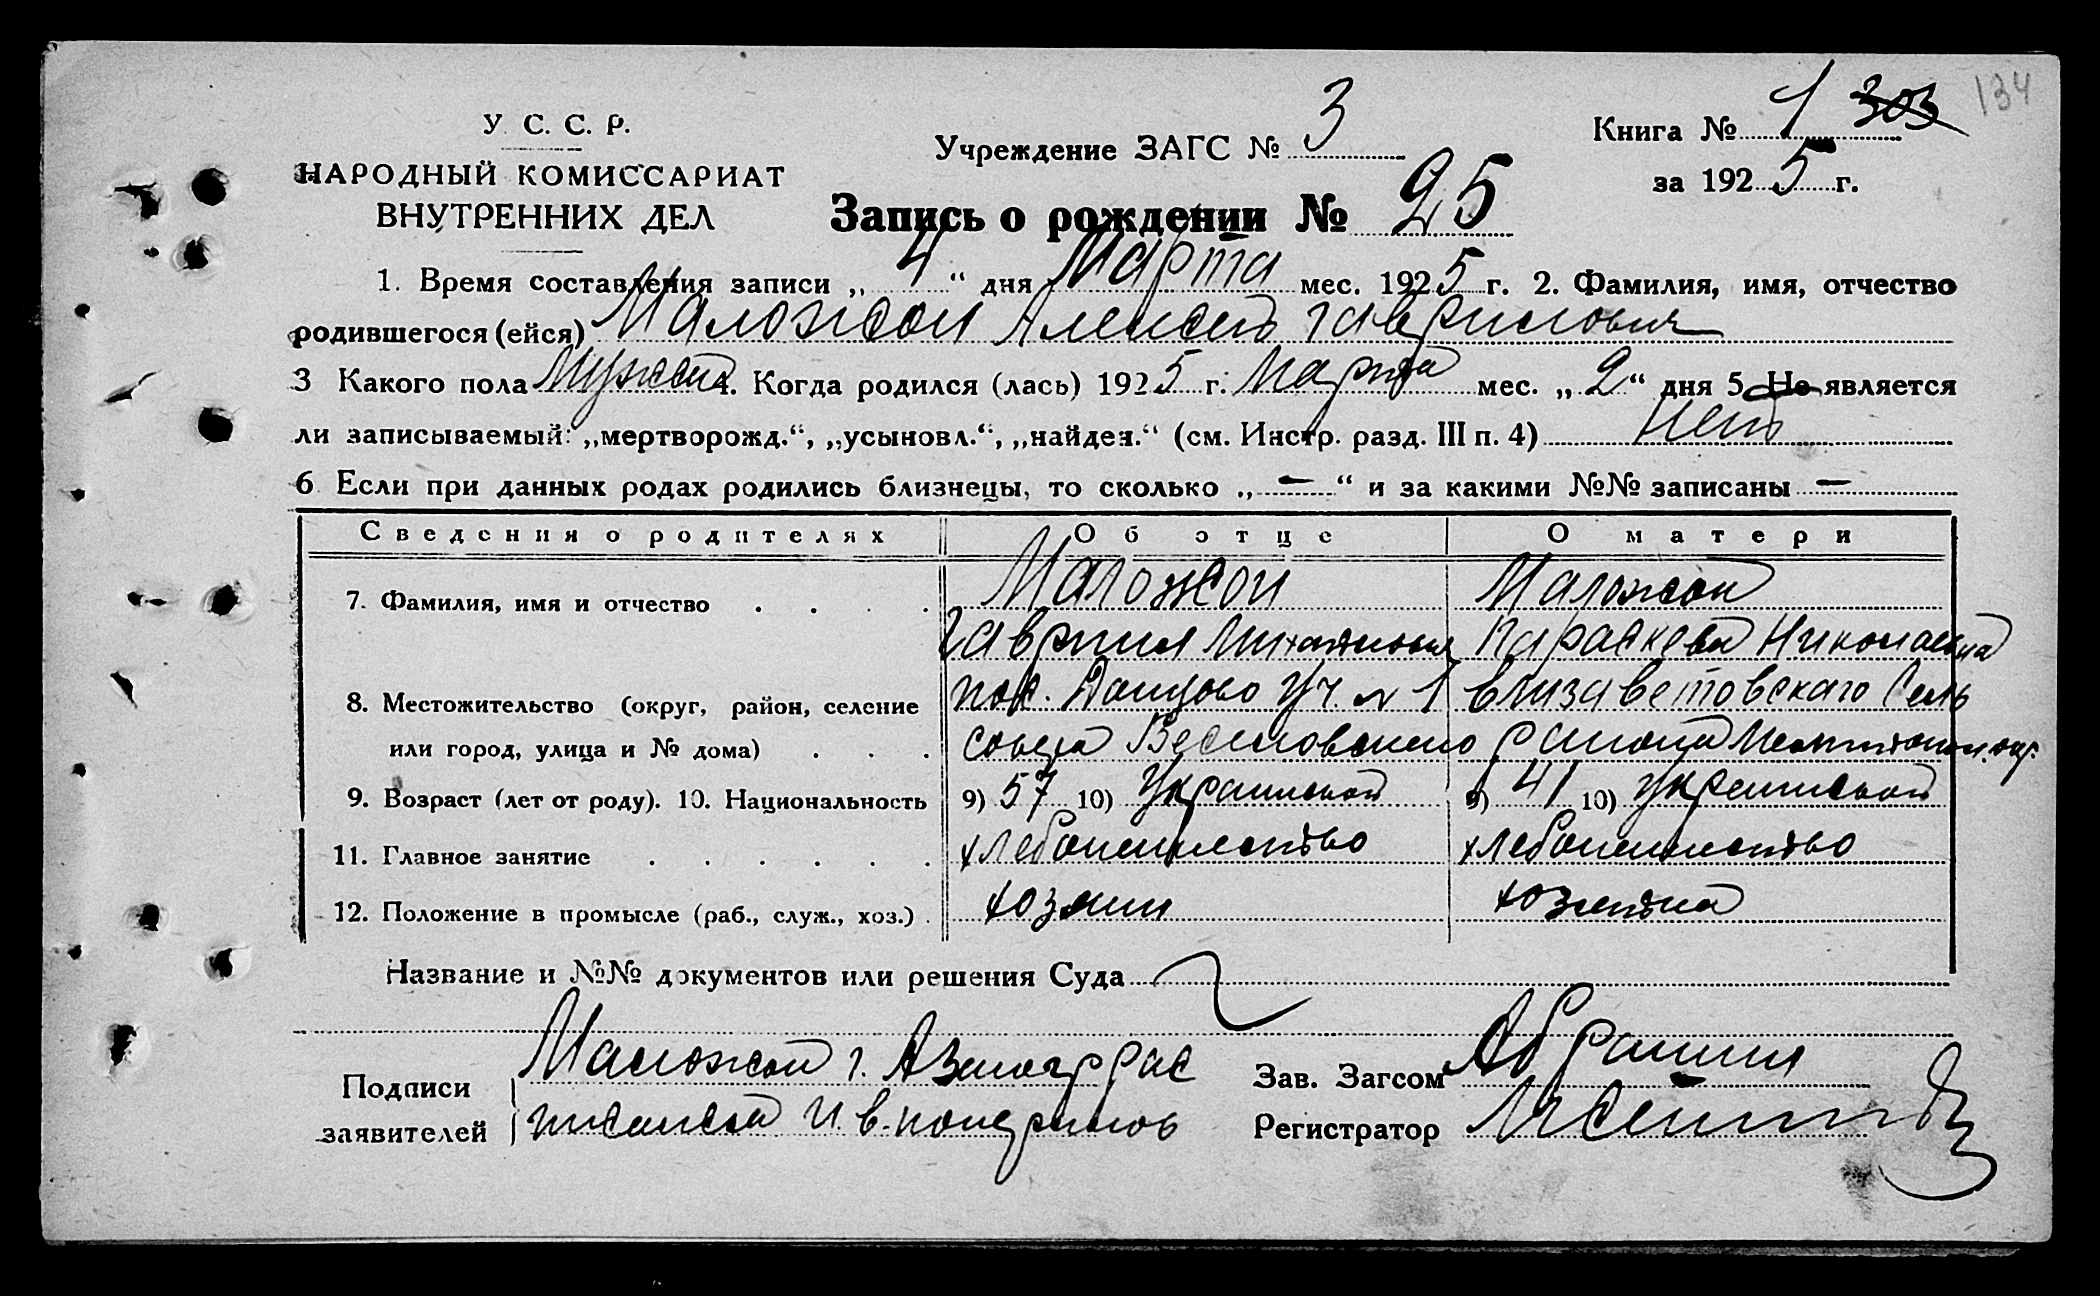 134
У. С. С. Р.
НАРОДНЫЙ КОМИССАРИАТ
ВНУТРЕННИХ ДЕЛ
Учреждение ЗАГС № 3
Книга № 1 303
за 1925 г.
Запись о рождении № 25
1. Время составления записи „4“ дня Марта мес. 1925 г. 2. Фамилия, имя, отчество
родившегося (ейся) Маложон Алексей Гаврилович
3 Какого пола Мужск 4. Когда родился (лась) 1925 г. Марта мес. „2“ дня 5. Не является
ли записываемый: „мертворожд.“, „усыновл.“, „найден.“ (см. Инстр. разд. III п. 4) нет
6 Если при данных родах родились близнецы, то сколько „—“ и за какими №№ записаны —
Сведения о родителях Об отце О матери
7. Фамилия, имя и отчество Маложон Маложон
Гавриил Михайлович Параскева Николаевна
8. Местожительство (округ, район, селение пос. Донцово уч. № 1 Елизаветовскаго Сель
или город, улица и № дома) совета Веселовского района Мелитопол. окр.
9. Возраст (лет от роду). 10. Национальность 9) 57 10) Украинской 9) 41 10) Украинской
11. Главное занятие хлебопашество хлебопашество
12. Положение в промысле (раб., служ., хоз.) хозяин хозяйка
Название и №№ документов или решения Суда
Подписи Маложон г. А Зав. Загсом
заявителей И. В. Регистратор